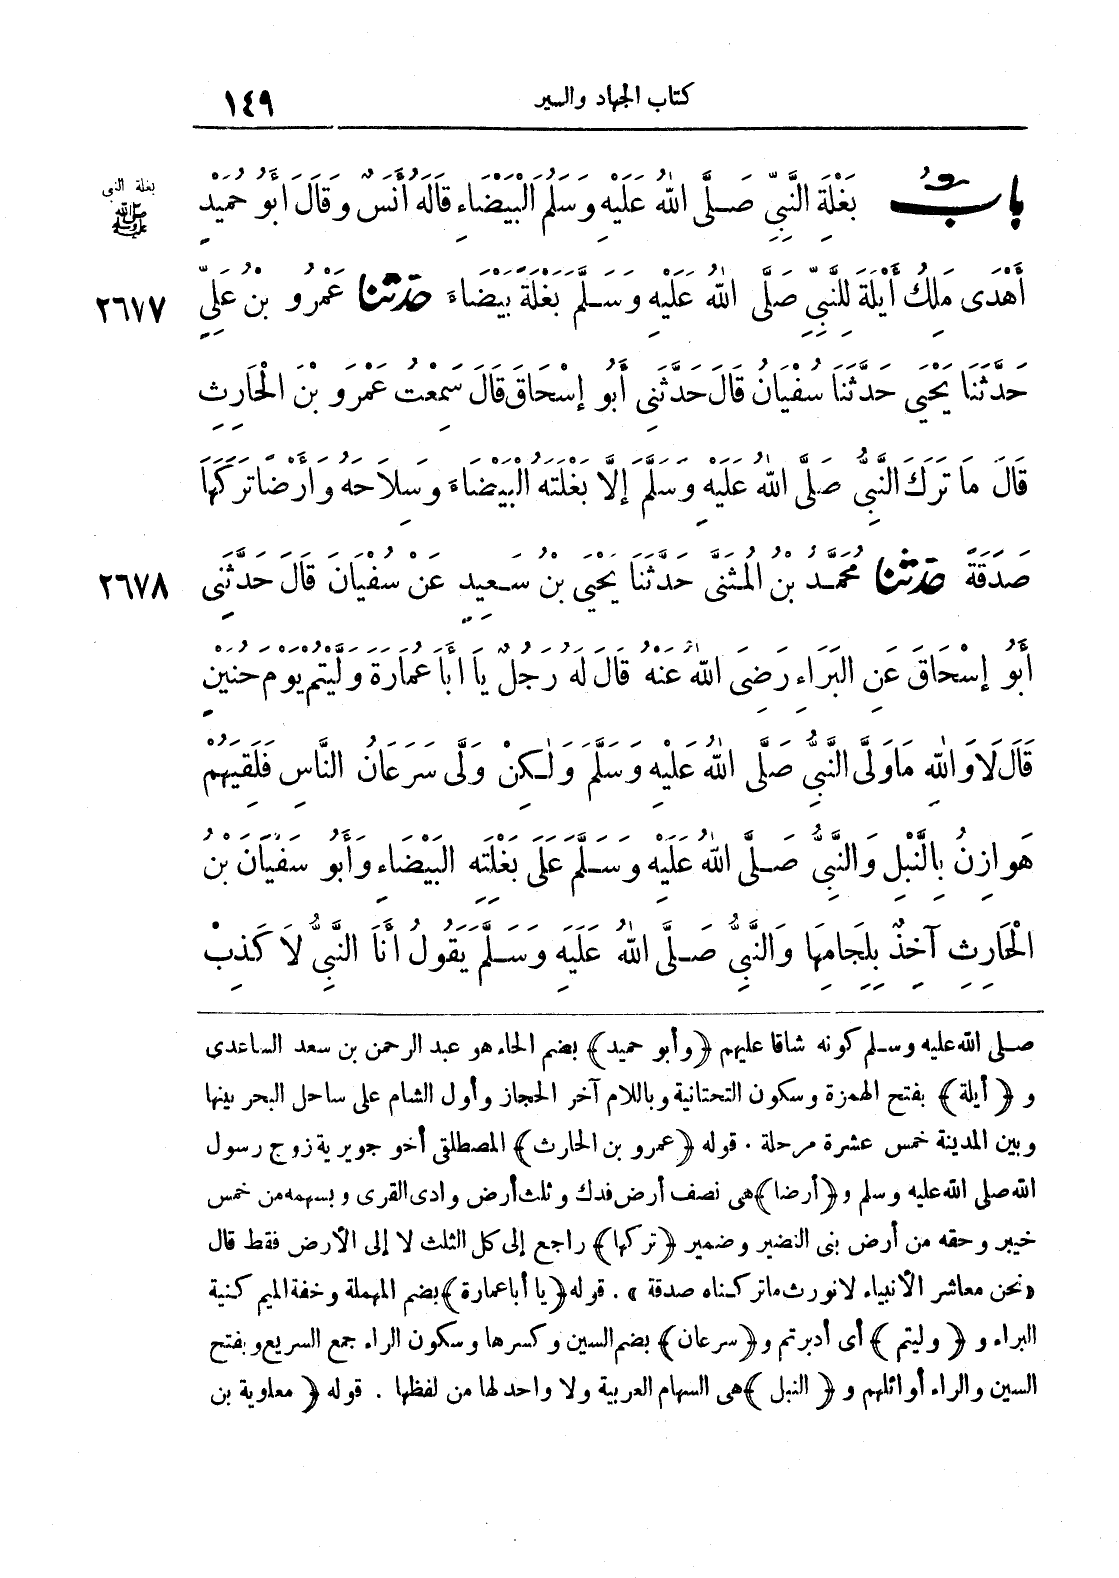 كتاب الجهاد والسير
١٤٩
بَابُ بَغْلَةِ النَّبِيِّ صَلَّى اللهُ عَلَيْهِ وَسَلَّمَ الْبَيْضَاءِ قَالَهُ أَنَسٌ وَقَالَ أَبُو حُمَيْدٍ
بغلة النبي ﷺ
أَهْدَى مَلِكُ أَيْلَةَ لِلنَّبِيِّ صَلَّى اللهُ عَلَيْهِ وَسَلَّمَ بَغْلَةً بَيْضَاءَ حَدَّثَنَا عَمْرُو بْنُ عَلِيٍّ
٢٦٧٧
حَدَّثَنَا يَحْيَى حَدَّثَنَا سُفْيَانُ قَالَ حَدَّثَنِي أَبُو إِسْحَاقَ قَالَ سَمِعْتُ عَمْرَو بْنَ الْحَارِثِ
قَالَ مَا تَرَكَ النَّبِيُّ صَلَّى اللهُ عَلَيْهِ وَسَلَّمَ إِلَّا بَغْلَتَهُ الْبَيْضَاءَ وَسِلَاحَهُ وَأَرْضًا تَرَكَهَا
صَدَقَةً حَدَّثَنَا مُحَمَّدُ بْنُ الْمُثَنَّى حَدَّثَنَا يَحْيَى بْنُ سَعِيدٍ عَنْ سُفْيَانَ قَالَ حَدَّثَنِي
٢٦٧٨
أَبُو إِسْحَاقَ عَنِ الْبَرَاءِ رَضِيَ اللهُ عَنْهُ قَالَ لَهُ رَجُلٌ يَا أَبَا عُمَارَةَ وَلَّيْتُمْ يَوْمَ حُنَيْنٍ
قَالَ لَا وَاللهِ مَا وَلَّى النَّبِيُّ صَلَّى اللهُ عَلَيْهِ وَسَلَّمَ وَلٰكِنْ وَلَّى سَرَعَانُ النَّاسِ فَلَقِيَهُمْ
هَوَازِنُ بِالنَّبْلِ وَالنَّبِيُّ صَلَّى اللهُ عَلَيْهِ وَسَلَّمَ عَلَى بَغْلَتِهِ الْبَيْضَاءِ وَأَبُو سُفْيَانَ بْنُ
الْحَارِثِ آخِذٌ بِلِجَامِهَا وَالنَّبِيُّ صَلَّى اللهُ عَلَيْهِ وَسَلَّمَ يَقُولُ أَنَا النَّبِيُّ لَا كَذِبْ
صلى الله عليه وسلم كونه شاقا عليهم ﴿وأبو حميد﴾ بضم الحاء هو عبد الرحمن بن سعد الساعدى
و ﴿أيلة﴾ بفتح الهمزة وسكون التحتانية وباللام آخر الحجاز وأول الشام على ساحل البحر بينها
وبين المدينة خمس عشرة مرحلة . قوله ﴿عمرو بن الحارث﴾ المصطلقى أخو جويرية زوج رسول
الله صلى الله عليه وسلم و﴿أرضا﴾ هى نصف أرض فدك وثلث أرض وادى القرى وبسهمه من خمس
خيبر وحقه من أرض بنى النضير وضمير ﴿تركها﴾ راجع إلى كل الثلث لا إلى الأرض فقط قال
«نحن معاشر الأنبياء لا نورث ما تركناه صدقة» . قوله ﴿يا أبا عمارة﴾ بضم المهملة وخفة الميم كنية
البراء و ﴿وليتم﴾ أى أدبرتم و﴿سرعان﴾ بضم السين وكسرها وسكون الراء جمع السريع وبفتح
السين والراء أوائلهم و ﴿النبل﴾ هى السهام العربية ولا واحد لها من لفظها . قوله ﴿معاوية بن